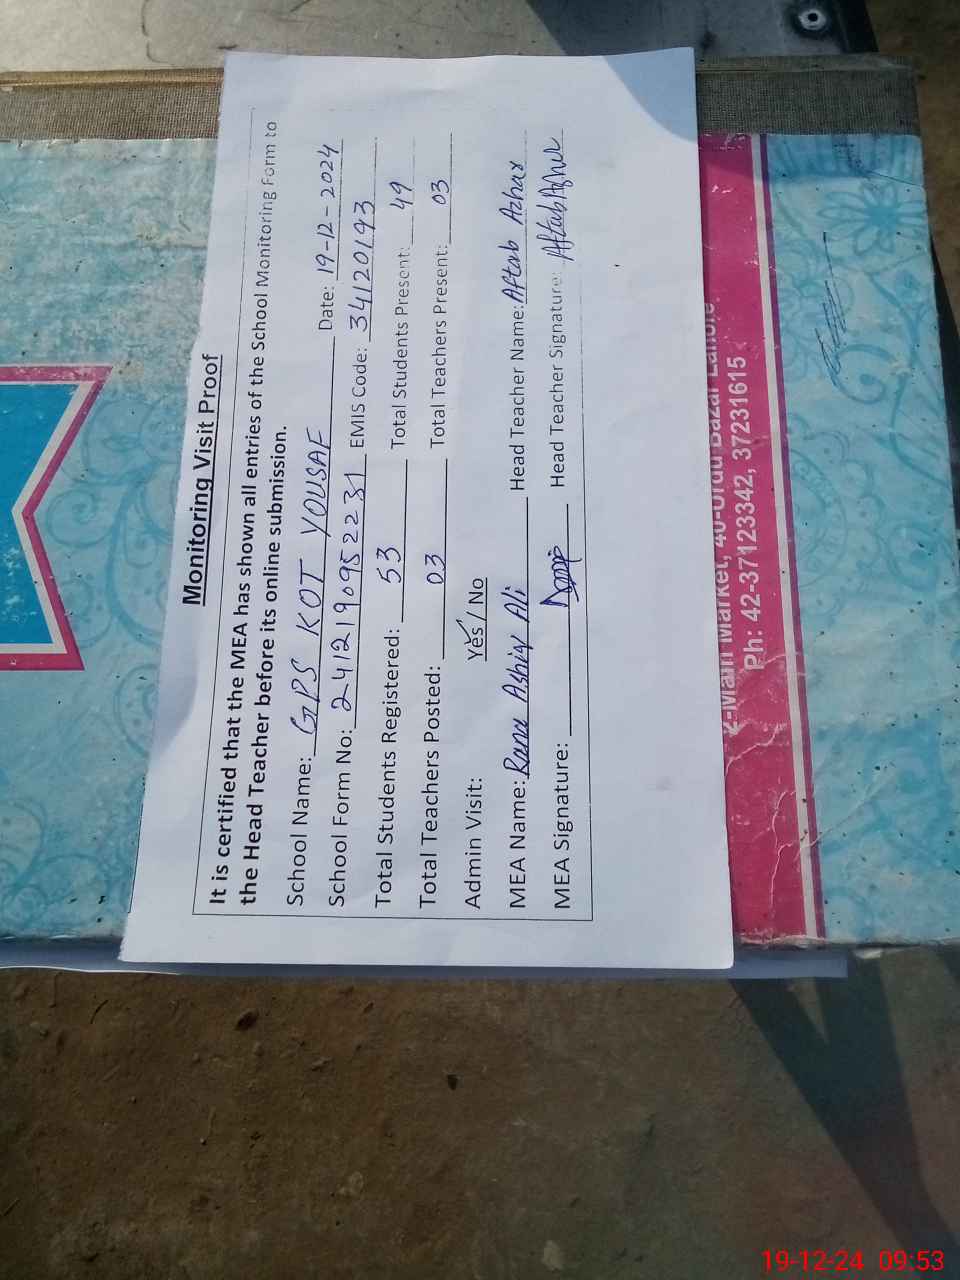 Monitoring Visit Proof
It is certified that the MEA has shown all entries of the School Monitoring Form to
the Head Teacher before its online submission.
School Name: GPS KOT YOUSAF Date: 19-12-2024
School Form No: 2412190952231 EMIS Code: 34120193
Total Students Registered: 53 Total Students Present: 49
Total Teachers Posted: 03 Total Teachers Present: 03
Admin Visit: Yes / No
MEA Name: Rana Ashiq Ali Head Teacher Name: Aftab Azhar
MEA Signature: Head Teacher Signature: Aftab Azhar
2-Main Market, 40-Urdu Bazar Lahore.
Ph: 42-37123342, 37231615
19-12-24 09:53